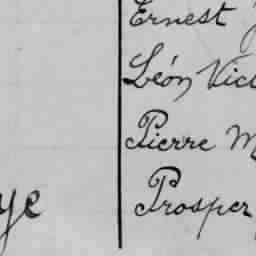 Ernest
Léon Vic
Pierre M
Prosper
ye